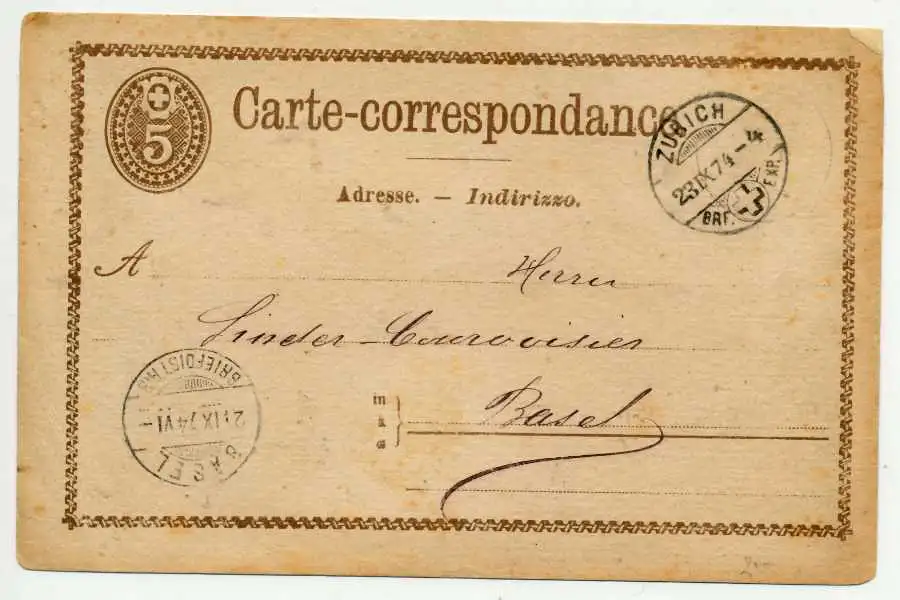 5
Carte-correspondance
ZÜRICH
23IX74-4
BRF. EXP.
Adresse. — Indirizzo.
A Herrn
Linder-Courvoisier
in
à
a
Basel
BRIEFDIST
IX74VI-
BASEL